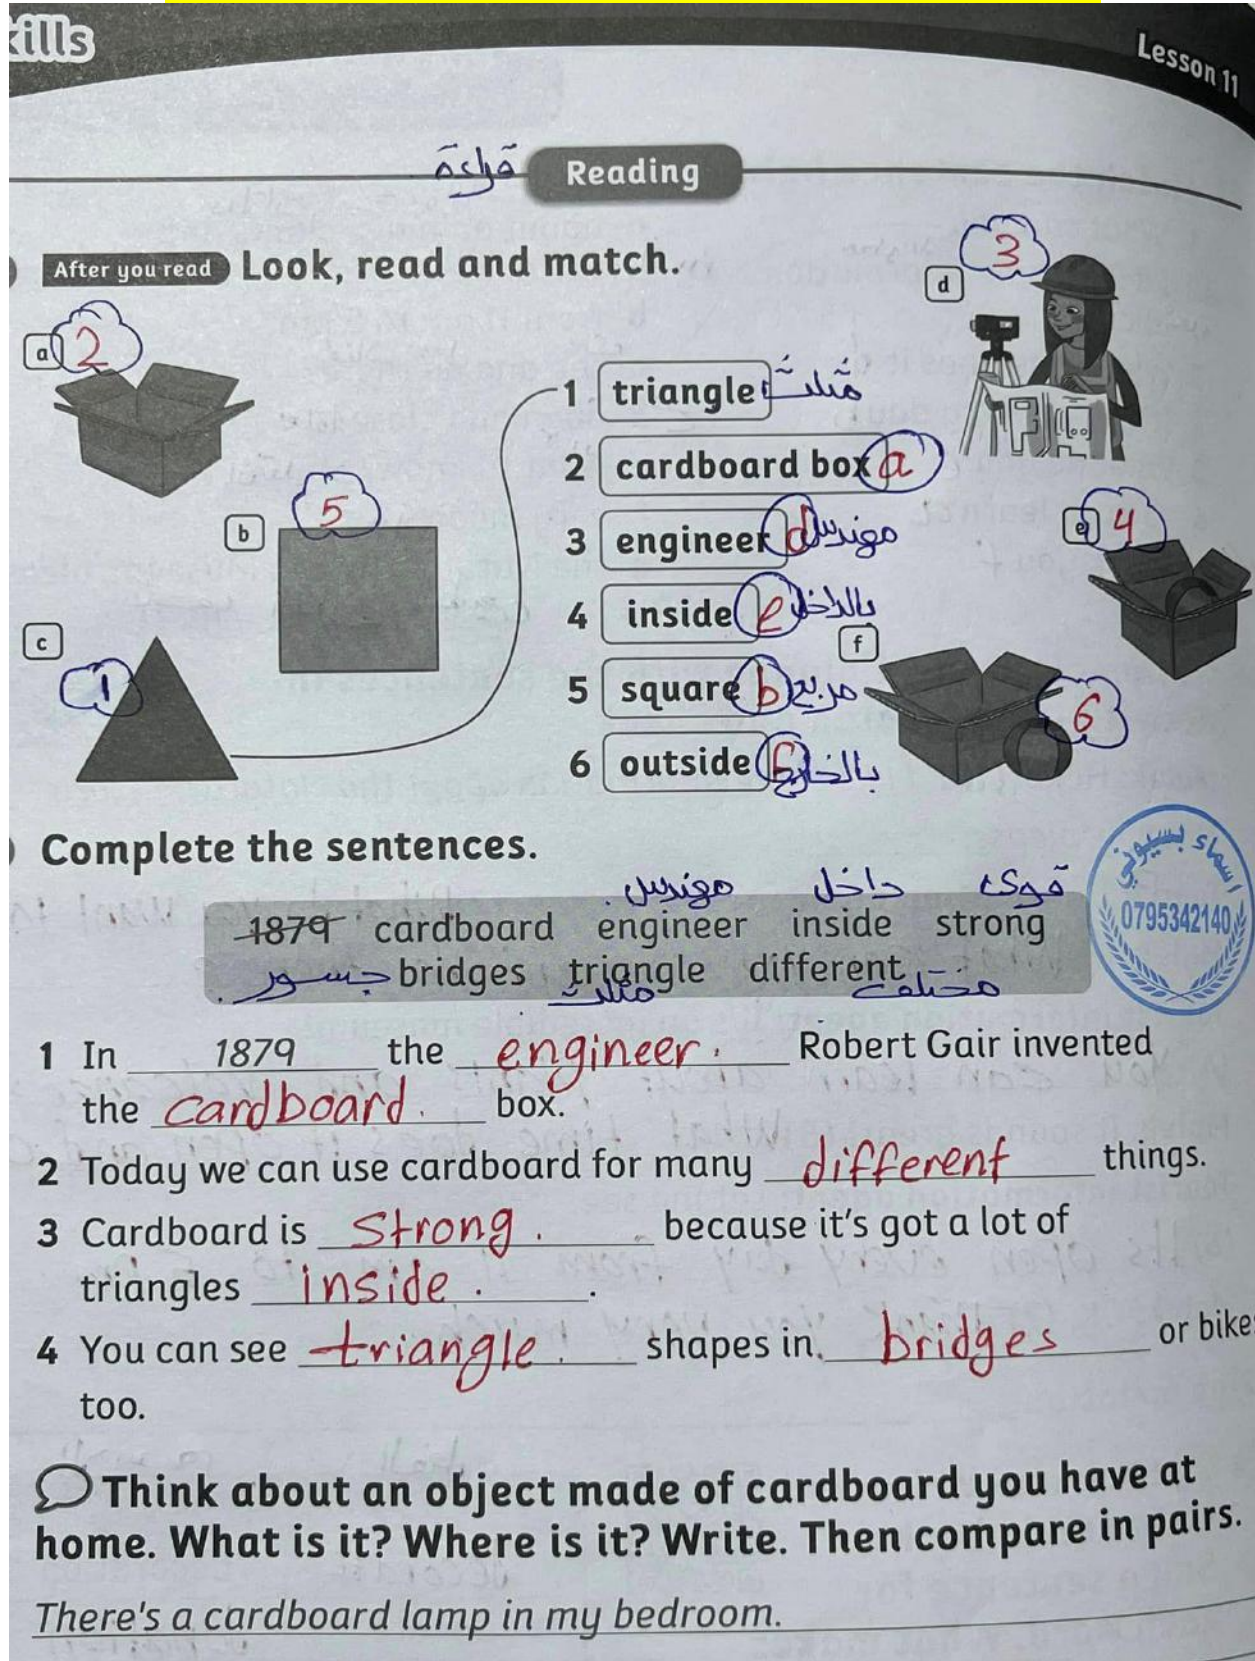 kills
Lesson 11
قراءة Reading
After you read Look, read and match.
a 2
b 5
c 1
d 3
e 4
f 6
1 triangle مثلث
2 cardboard box a
3 engineer d مهندس
4 inside e بالداخل
5 square b مربع
6 outside f بالخارج
Complete the sentences.
مهندس داخل قوي
1879 cardboard engineer inside strong
جسور bridges triangle different
مثلث مختلف
اسماء بسيوني
0795342140
1 In 1879 the engineer. Robert Gair invented
the cardboard. box.
2 Today we can use cardboard for many different things.
3 Cardboard is strong. because it's got a lot of
triangles inside. .
4 You can see triangle. shapes in bridges or bike
too.
Think about an object made of cardboard you have at
home. What is it? Where is it? Write. Then compare in pairs.
There's a cardboard lamp in my bedroom.